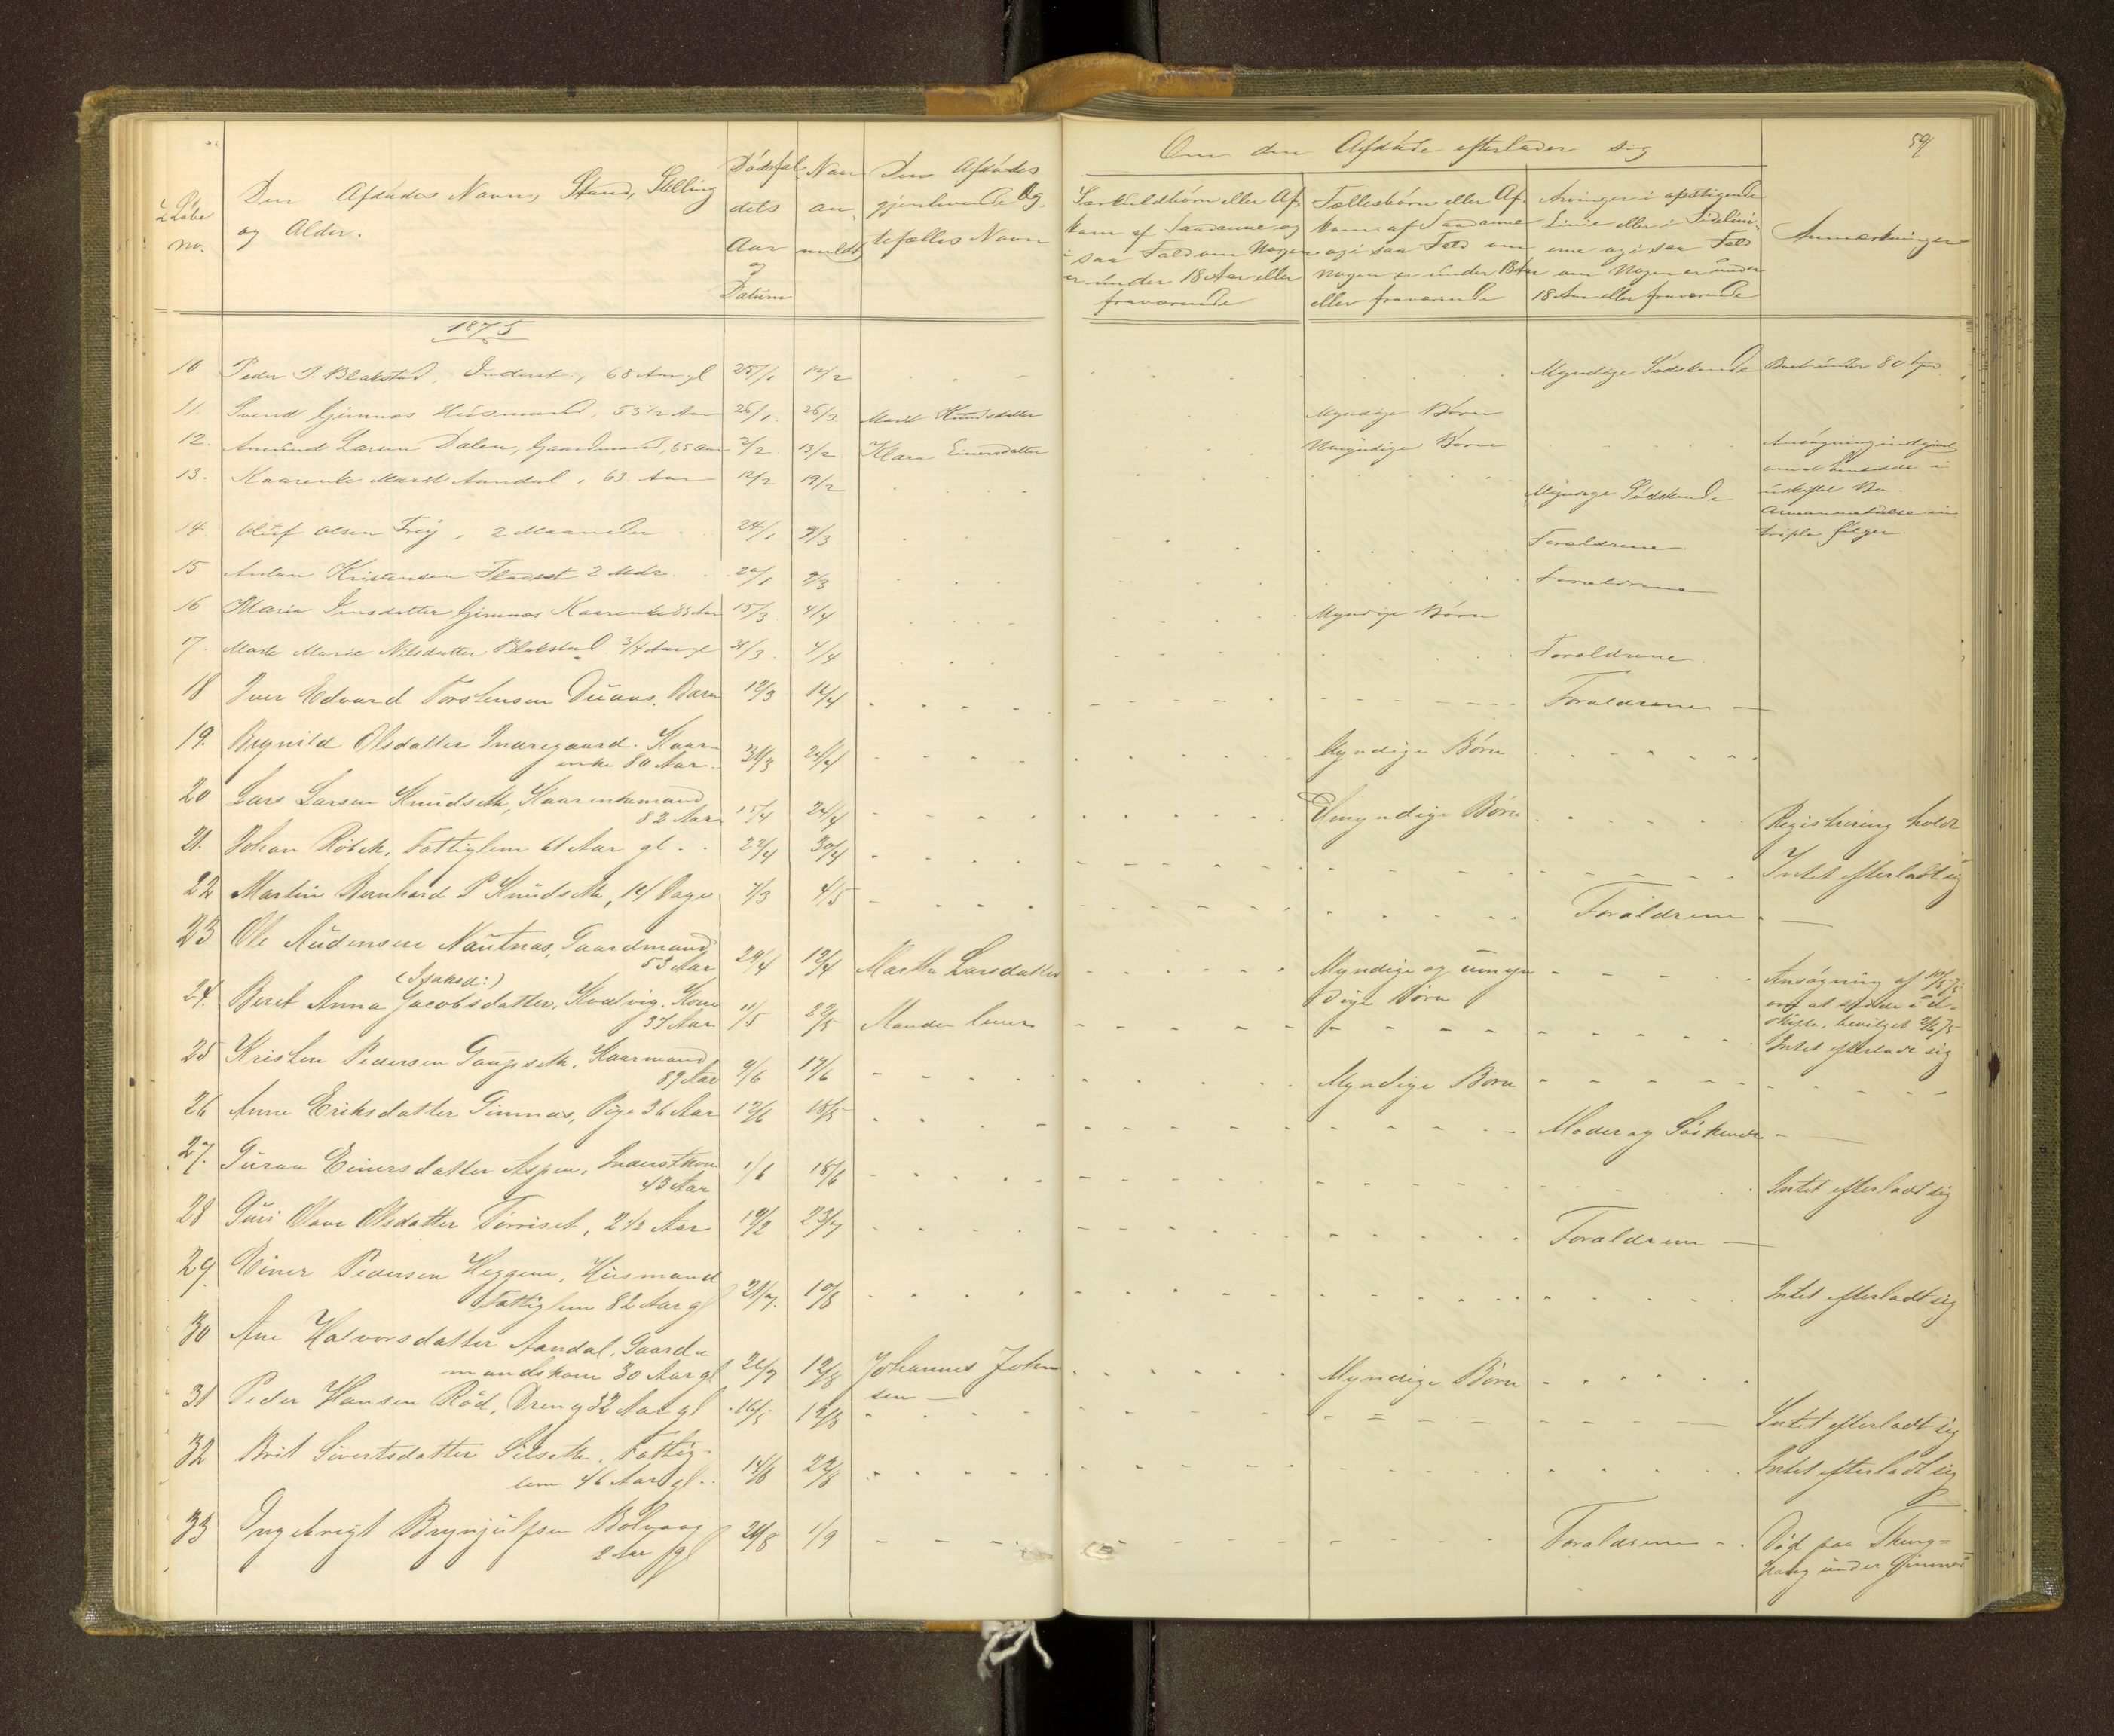 59
Om den Afdøde efterlader sig
Løbe no.
Den Afdødes Navn, Stand, Stilling og Alder.
Dødsfaldets Aar og Datum
Naar anmeldt
Den Afdødes gjenlevende Ægtefælles Navn
Særkuldbørn eller Afkom af Saadanne og i saa Fald om Nogen er under 18 Aar eller fraværende
Fællesbørn eller Afkom af Saadanne og i saa Fald om Nogen er under 18 Aar eller fraværende
Arvinger i opstigende Linie eller i Sidelinierne og i saa Fald om Nogen er under 18 Aar eller fraværende
Anmærkninger
1875
10 Peder J. Blakstad, Inderst, 68 Aar gl 25/1 12/2 Myndige Sødskende Boet under 80 Spd.
11. Svend Gimnæs Husmand, 53 1/2 Aar 26/1. 26/3 Marit Knudsdatter Myndige Børn
12. Amund Larsen Dalen, Gaardmand, 65 Aar 2/2 13/2 Einersdatter Umyndige Børn Ansøgning indgivet
om at hensidde i
uskiftet Bo.
13. Kaarenke Marit Aandal, 63 Aar 12/2 19/2 Myndige Sødskende
14. Oluf Olsen Frey, 2 Maaneder 24/1 9/3 Forældrene
15 Anton Kristensen 2 Mdr. 20/1 9/3 Forældrene
16 Maria Jensdatter Gimnæs Kaarenke 83 Aar 15/3 4/4 Myndige Børn
17. Marie Nilsdatter Blakstad 3/4 Aar gl 31/3 4/4 Forældrene
18 Iver Edvard Torstensen Barn 12/3 14/4 Forældrene
19. Brynild Olsdatter Indregaard. Kaar-
enke 80 Aar. 31/3 24/4 Myndige Børn
20 Lars Larsen Knudseth, Kaarenkemand
82 Aar 15/4 24/4 Umyndige Børn Registrering holdt
21. Johan Røbek, Fattiglem 61 Aar gl. 22/4 30/4 Intet efterladt sig
22 Martin Bernhard P Knudseth, 14 Dage 7/3 4/5 Forældrene
23 Ole Audensen Nautnæs, Gaardmand
53 Aar 24/4 12/4 Marthe Larsdatter Myndige og umyn
dige Børn Ansøgning af 10/5 75
om at sidde i u-
skifte, bevilget 2/6 75
24. Beret Anna Jacobsdatter, (Isaksd:) Kone
37 Aar 11/5 22/5 Manden lever Intet efterladt sig
25 Kristen Pedersen Gaupseth, Kaarmand
89 Aar 9/6 17/6 Myndige Børn
26 Anne Eriksdatter Gimnæs, Pige 36 Aar 12/6 18/5 Moder og Søskende
27. Guren Einersdatter Aspen, Inderstkone
43 Aar 1/6 18/6 Intet efterladt sig
28 Guri Olsdatter Tørriset, 2 1/2 Aar 19/2 23/7 Forældrene
29. Einer Pedersen Heggem, Husmand
Fattiglem 82 Aar gl 21/7. 10/8 Intet efterladt sig
30 Ane Halvorsdatter Aandal, Gaard-
mandskone 30 Aar gl 26/7 12/8 Johannes John
sen Myndige Børn
31 Peder Hansen Rød, Dreng 32 Aar gl 16/5 12/8 Intet efterladt sig
32 Brit Sivertsdatter Silseth, Fattig-
lem 46 Aar gl. 14/8 22/8 Intet efterladt sig
33 Ingebrigt Brynjulfsen Bolvaag
2 Aar gl 24/8 1/9 Forældrene Død paa Thing-
Haug under Gimnæs